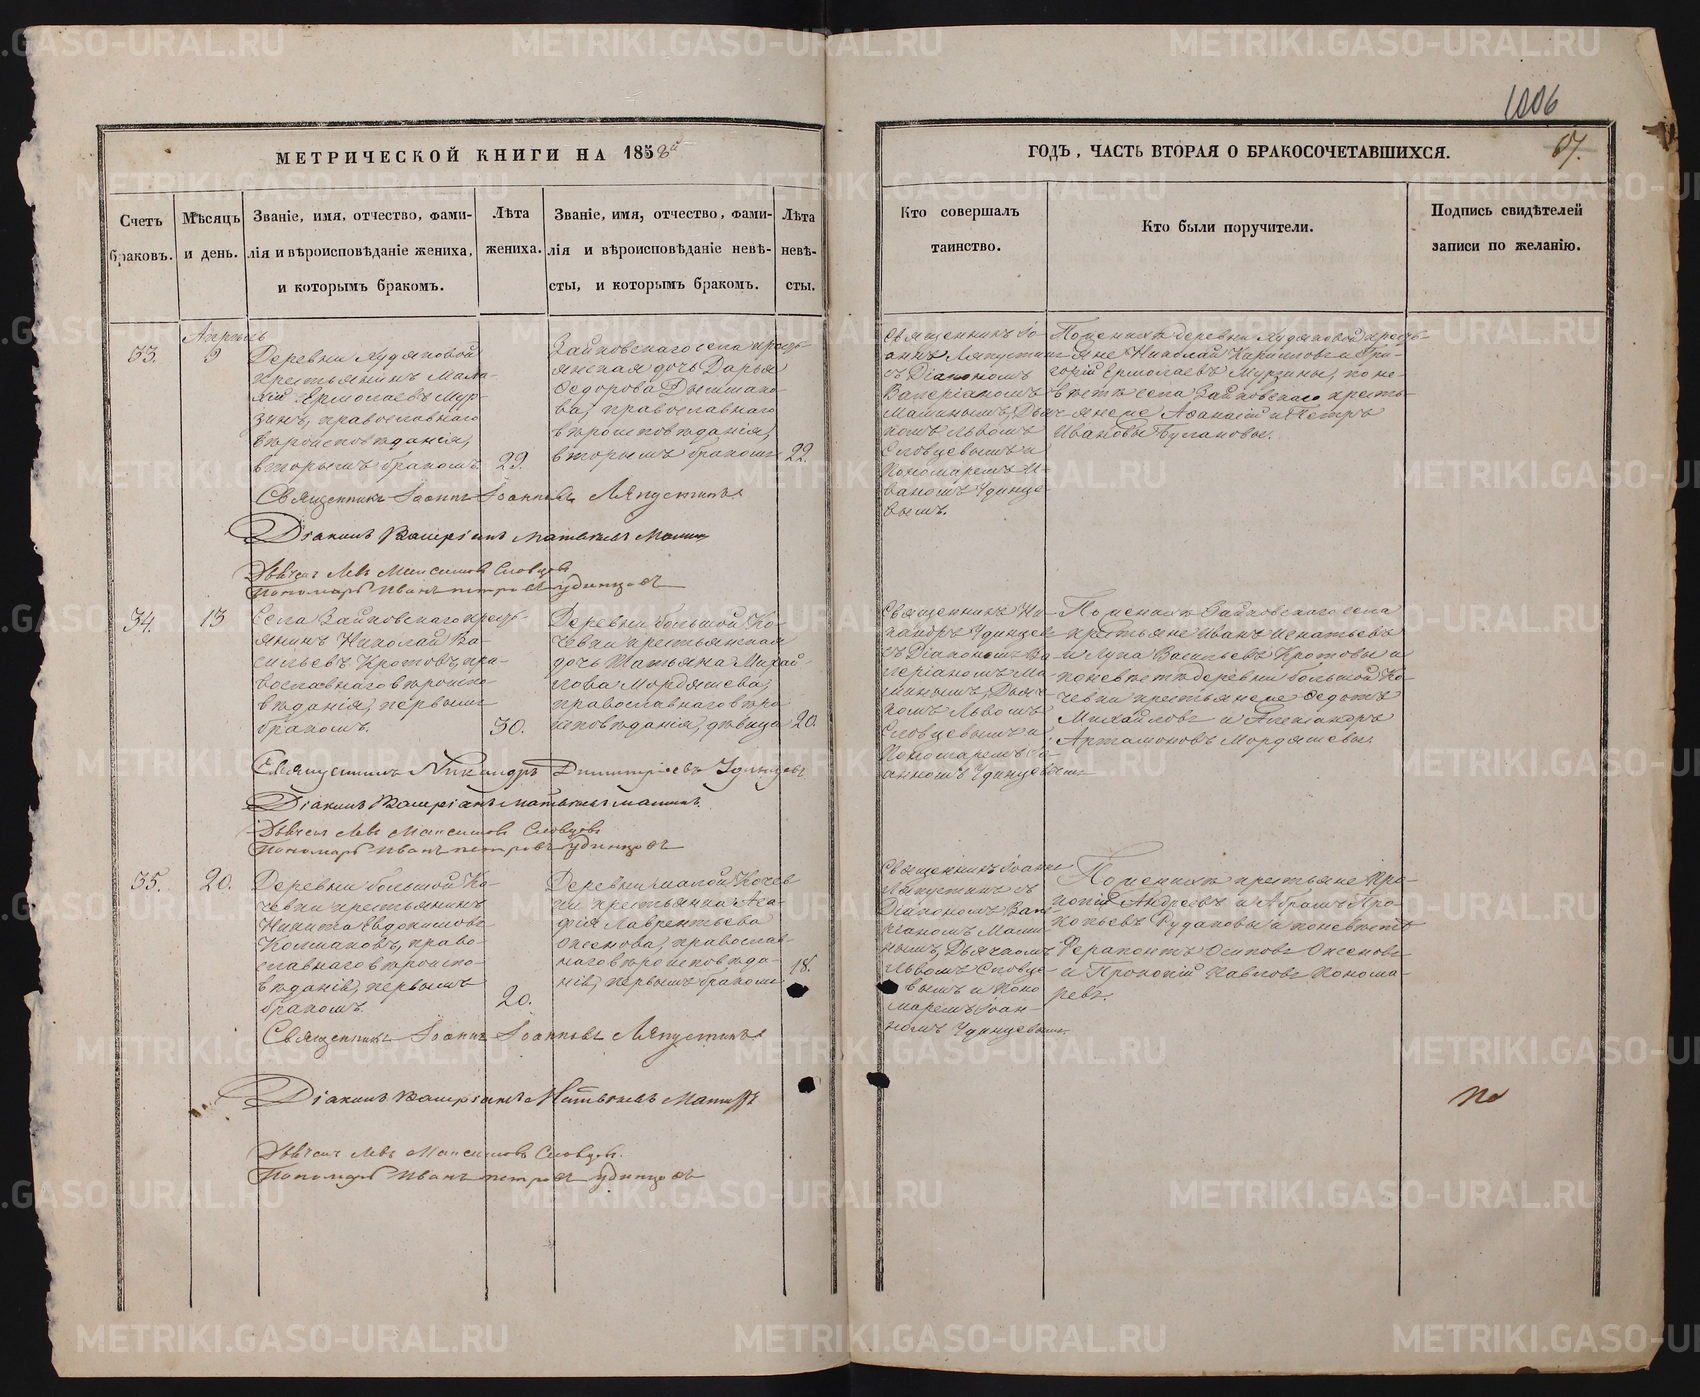 1006
МЕТРИЧЕСКОЙ КНИГИ НА 1858й
ГОДЪ, ЧАСТЬ ВТОРАЯ О БРАКОСОЧЕТАВШИХСЯ.
67.
Счетъ
браковъ.
Мѣсяцъ
и день.
Званіе, имя, отчество, фами-
лія и вѣроисповѣданіе жениха,
и которымъ бракомъ.
Лѣта
жениха.
Званіе, имя, отчество, фами-
лія и вѣроисповѣданіе невѣ-
сты, и которымъ бракомъ.
Лѣта
невѣ-
сты.
Кто совершалъ
таинство.
Кто были поручители.
Подпись свидѣтелей
записи по желанію.
33.
Апрѣль
9
Деревни Худяковой
крестьянинъ Мала-
хій Ермолаевъ Мур-
зинъ, православнаго
вѣроисповѣданія,
вторымъ бракомъ.
23.
Зайковскаго села кресть-
янская дочь Дарья
Ѳедорова
православнаго
вѣроисповѣданія,
вторымъ бракомъ
22.
Священникъ Іо-
аннъ Ляпустинъ
съ Діакономъ
Валеріаномъ
Маминымъ, Дьяч-
комъ Львомъ
Словцевымъ и
Пономаремъ И-
ваномъ Удинце-
вымъ.
По женихѣ деревни Худяковой кресть-
яне Николай и Гри-
горій Ермолаевъ Мурзины, по не-
вѣстѣ села Зайковскаго кресть-
янские Аѳанасій и Петръ
Ивановы Булановы.
Священникъ Іоаннъ Іоанновъ Ляпустинъ
Діаконъ Валеріанъ Матвѣевъ Маминъ
Дьячекъ Левъ Максимовъ Словцовъ
Пономарь Иванъ Петровъ Удинцовъ
34.
13
Села Зайковскаго кресть-
янинъ Николай Ва-
сильевъ Кротовъ, пра-
вославнаго вѣроиспо-
вѣданія, первымъ
бракомъ.
30.
Деревни большой Ко-
чевки крестьянская
дочь Татьяна Михай-
лова Мордяшева,
православнаго вѣро
исповѣданія, дѣвица
20.
Священникъ Ни-
кандръ Удинцевъ
съ Діакономъ Ва-
леріаномъ Ма-
минымъ, Дьяч-
комъ Львомъ
Словцевымъ и
Пономаремъ Іо-
анномъ Удинцевымъ
По женихѣ Зайковскаго села
крестьяне Иванъ Игнатьевъ
и Лука Васильевъ Кротовы и
по невѣстѣ деревни большой Ко-
чевки крестьянеже Ѳедотъ
Михайловъ и Александръ
Артамоновъ Мордяшевы
Священникъ Никандръ Димитріевъ Удинцевъ
Діаконъ Валеріанъ Матвѣевъ Маминъ.
Дьячекъ Левъ Максимовъ Словцовъ
Пономарь Иванъ Петровъ Удинцовъ
35.
20.
Деревни большой Ко-
чевки крестьянинъ
Никита Евдокимовъ
Колмаковъ, право-
славнаго вѣроиспо-
вѣданія, первымъ
бракомъ.
20.
Деревни малой Кочев
ки крестьянка Ага-
фія Лаврентьева
Оксенова, православ-
наго вѣроисповѣда-
нія, первымъ бракомъ
18.
Священникъ Іоаннъ
Ляпустинъ съ
Діакономъ Вале
ріаномъ Мами
нымъ, Дьячкомъ
Львомъ Словце-
вымъ и Поно
маремъ Іоан-
номъ Удинцевымъ.
По женихѣ крестьяне Про-
копій Андреевъ и Абрамъ Про-
копьевъ Рудаковы и по невѣстѣ
Ферапонтъ Осиповъ Оксеновъ
и Прокопій Павловъ Понома-
ревъ.
Священникъ Іоаннъ Іоанновъ Ляпустинъ
Діаконъ Валеріанъ Матвѣевъ Маминъ
Дьячекъ Левъ Максимовъ Словцовъ.
Пономарь Иванъ Петровъ Удинцовъ
по
METRIKI.GASO-URAL.RU